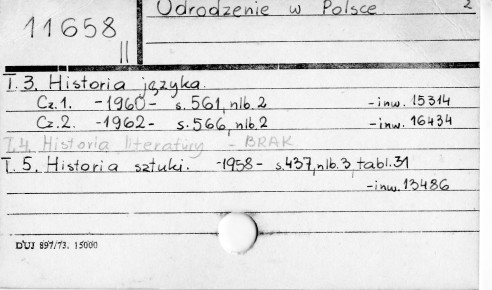 Odrodzenie w Polsce. 2
11658
II
T.3. Historia języka.
Cz.1. -1960- s.561, nlb.2 -inw. 15314
Cz.2. -1962- s.566, nlb.2 -inw. 16434
T.4. Historia literatury - BRAK
T.5. Historia sztuki. -1958- s.437, nlb.3, tabl.31
-inw. 13486
DUJ 897/73. 15000